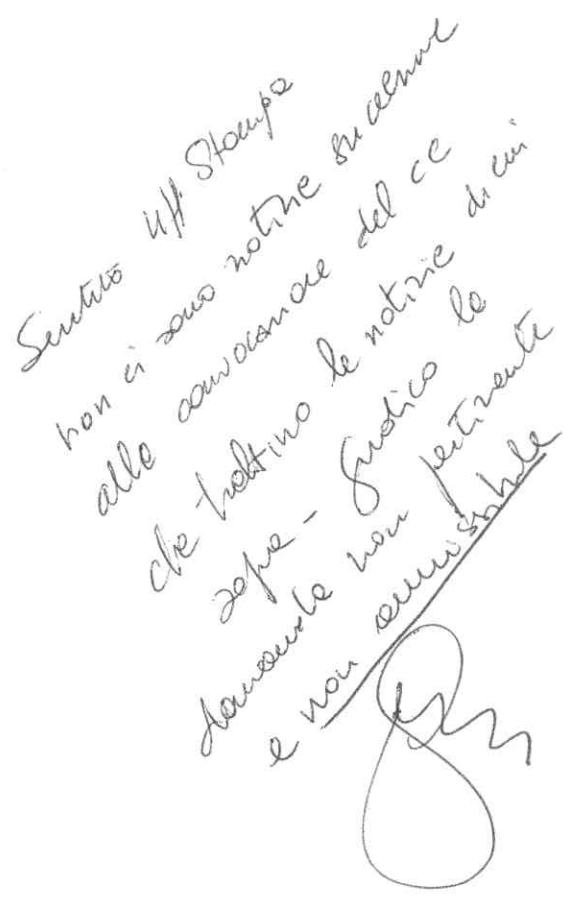 Sentito Uff Stampa
non ci sono notizie successive
alla convocazione del CC
che trattino le notizie di cui
sopra - Giudico la
domanda non pertinente
e non ammissibile